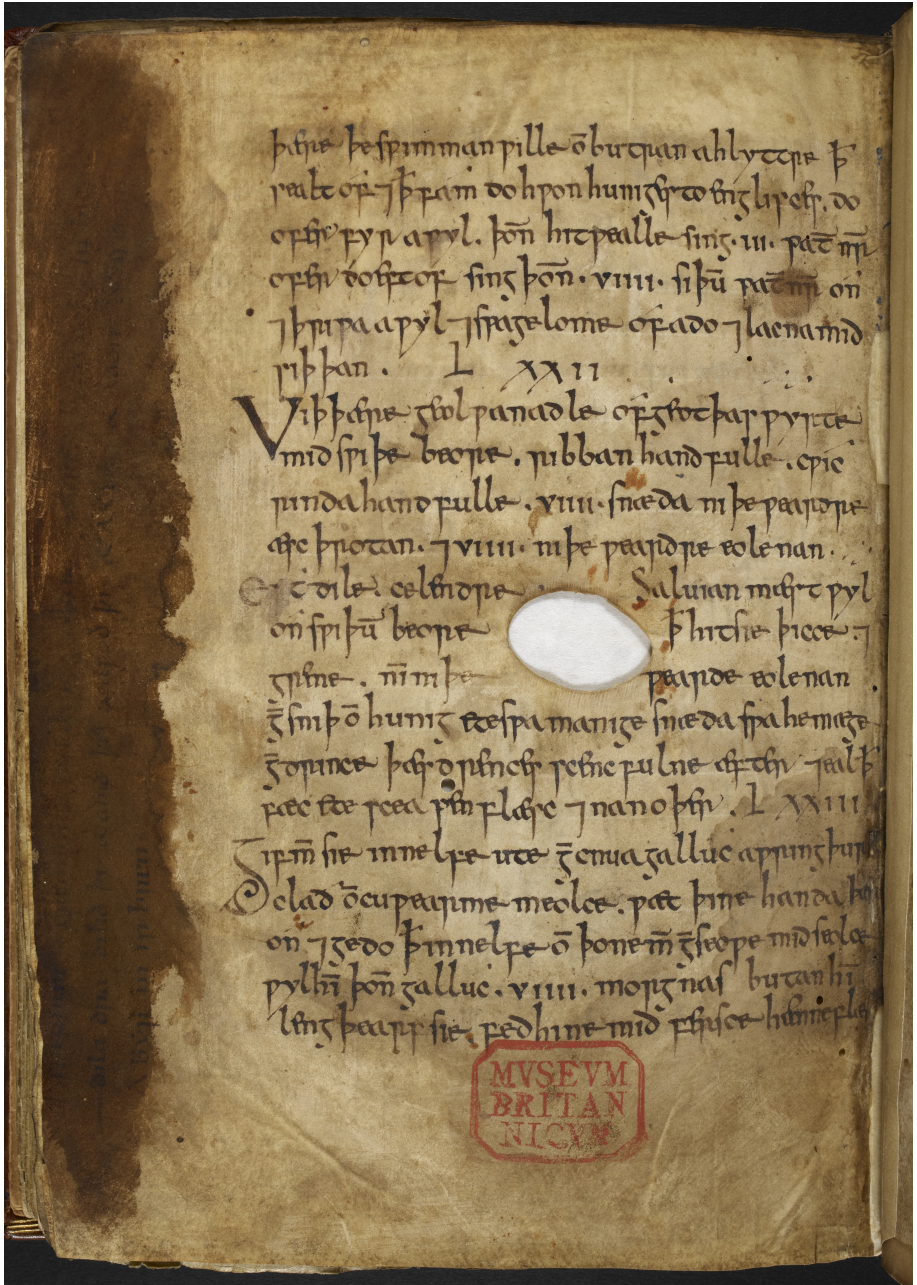 þære þe swinman wille oñ buteran ahlyttre þ̄
sealt of ⁊ þ̄ fam do hwon huniges to englisces. do
ofer fyr awyl. þoñ hit wealle sing · III · pat̄ nr̄
ofer do eft of sing þoñ · VIIII · siþū pat̄ nr̄ on
⁊ þriwa awyl ⁊ swa gelome of ado ⁊ lacna mid
siþþan . L XXII
Viþ þære geolwan adle ofgeot þas wyrte
mid swiþe beore . ribban handfulle . cwic
rinda handfulle . VIIII · snæda niþeweardre
æscþrotan · ⁊ VIIII · niþeweardre eolenan ·
Eft dile . celendre . Saluian mæst wyl
on swiþū beore þ̄ hit sie þicce . ⁊
grene . nīm niþe wearde eolenan
ḡsniþ ō hunig ete swa manige snæda swa he mæge
ḡdrince þæs drences scenc fulne æfter ⁊ eal þ̄
fæc ete sceapen flæsc ⁊ nan oþer . L XXIII
Gif m̄ sie innelfe ute ḡcnua galluc awring þurh
clað ō cuwearme meolce . wæt þine handa þær
on ⁊ gedo þ̄ innelfe ō þone m̄ ḡseowe mid seolce
wyl hī þoñ galluc · VIIII · morgnas butan hī
leng þearf sie . fed hine mid fersce hænneflæsce
MVSEVM
BRITAN
NICVM